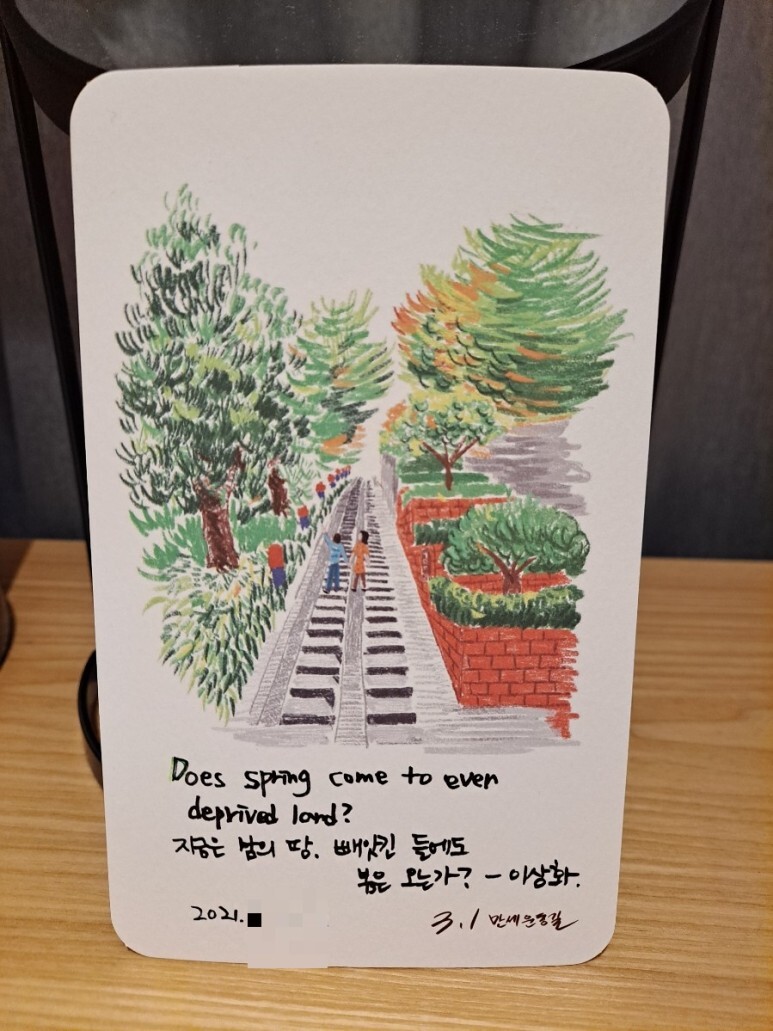 Does spring come to even
deprived land?
지금은 남의 땅. 빼앗긴 들에도
봄은 오는가? - 이상화.
2021.
3.1 만세운동길